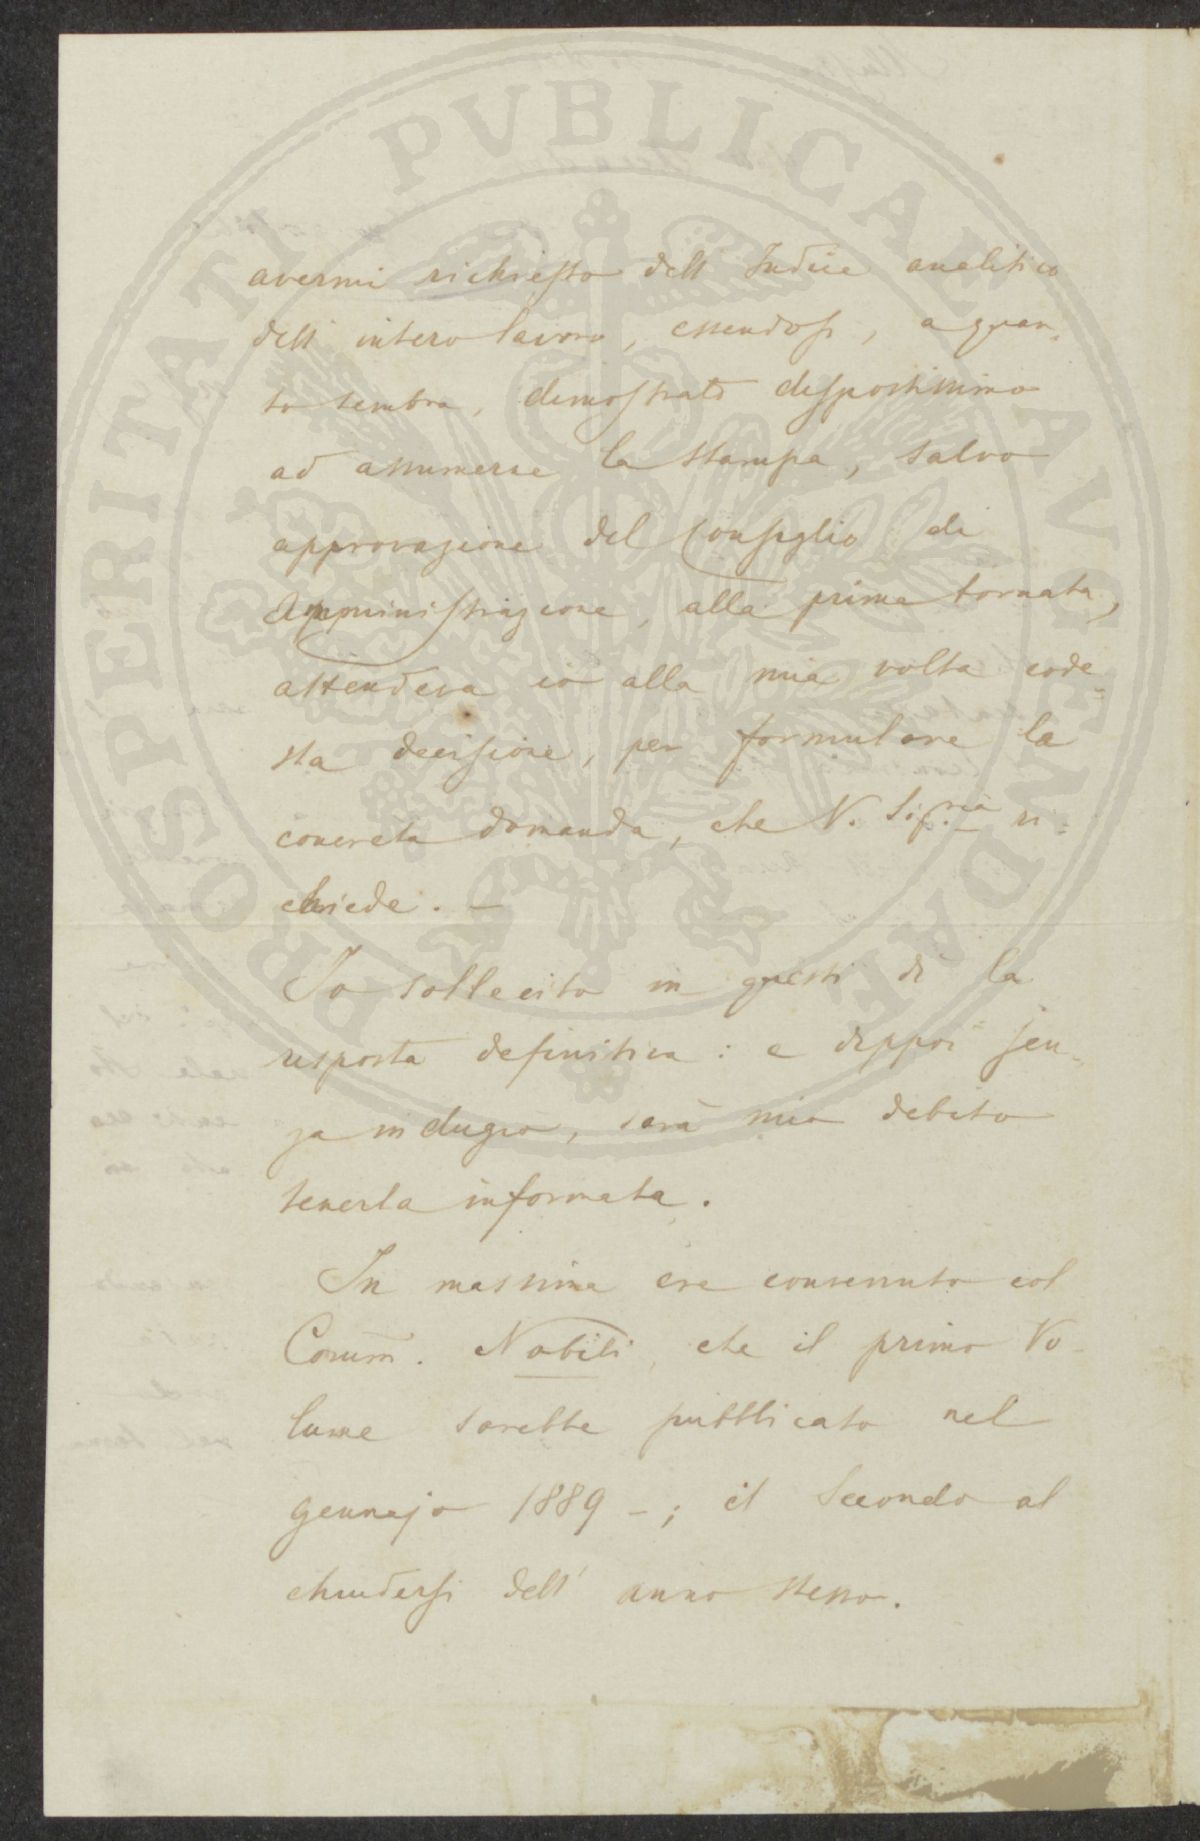 PROSPERITATI PVBLICAE AVGENDAE
avermi richiesto dell' Indice analitico
dell' intero lavoro, essendosi, a quan-
to sembra, dimostrato dispostissimo
ad assumerne la stampa, salvo
approvazione del Consiglio di
Amministrazione, alla prima tornata,
attendeva io alla mia volta code-
sta decisione, per formulare la
concreta domanda, che V. Sig.ria ri-
chiede. -
Io sollecito in questi dì la
risposta definitiva: e dippoi sen-
za indugio, sarà mio debito
tenerla informata.
In massima era convenuto col
Comm. Nobili, che il primo Vo-
lume sarebbe pubblicato nel
gennajo 1889 -; il Secondo al
chiudersi dell' anno stesso.